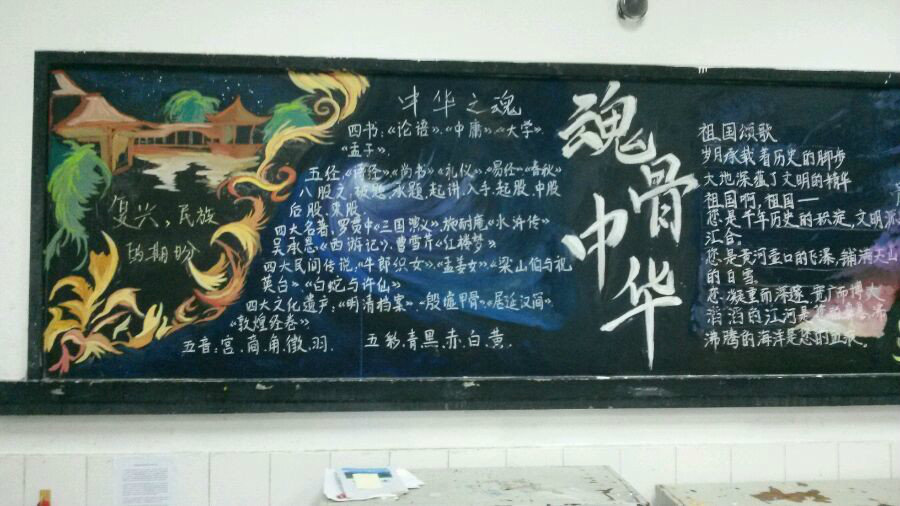 复兴、民族
的期盼
中华之魂
四书:《论语》、《中庸》、《大学》、
《孟子》.
五经、《诗经》《尚书》《礼仪》、《易经》《春秋》
八股文、破题、承题、起讲、入手、起股、中股
后股、束股.
四大名著、罗贯中《三国演义》、施耐庵《水浒传》
吴承恩《西游记》、曹雪芹《红楼梦》
四大民间传说、《牛郎织女》、《孟姜女》、《梁山伯与祝
英台》《白蛇与许仙》
四大文化遗产:《明清档案》《殷墟甲骨》居延汉简》
《敦煌经卷》
五音:宫、商、角、徵、羽.
五彩、青、黑、赤、白、黄.
魂骨
中华
祖国颂歌
岁月承载着历史的脚步
大地深蕴了文明的精华
祖国啊,祖国一
您是千年历史的积淀,文明派
汇合.
您是黄河壶口的飞瀑,铺满天山
的白雪.
您,凝重而深邃,宽广而博大
滔滔的江河是
沸腾的海洋是您的血液.